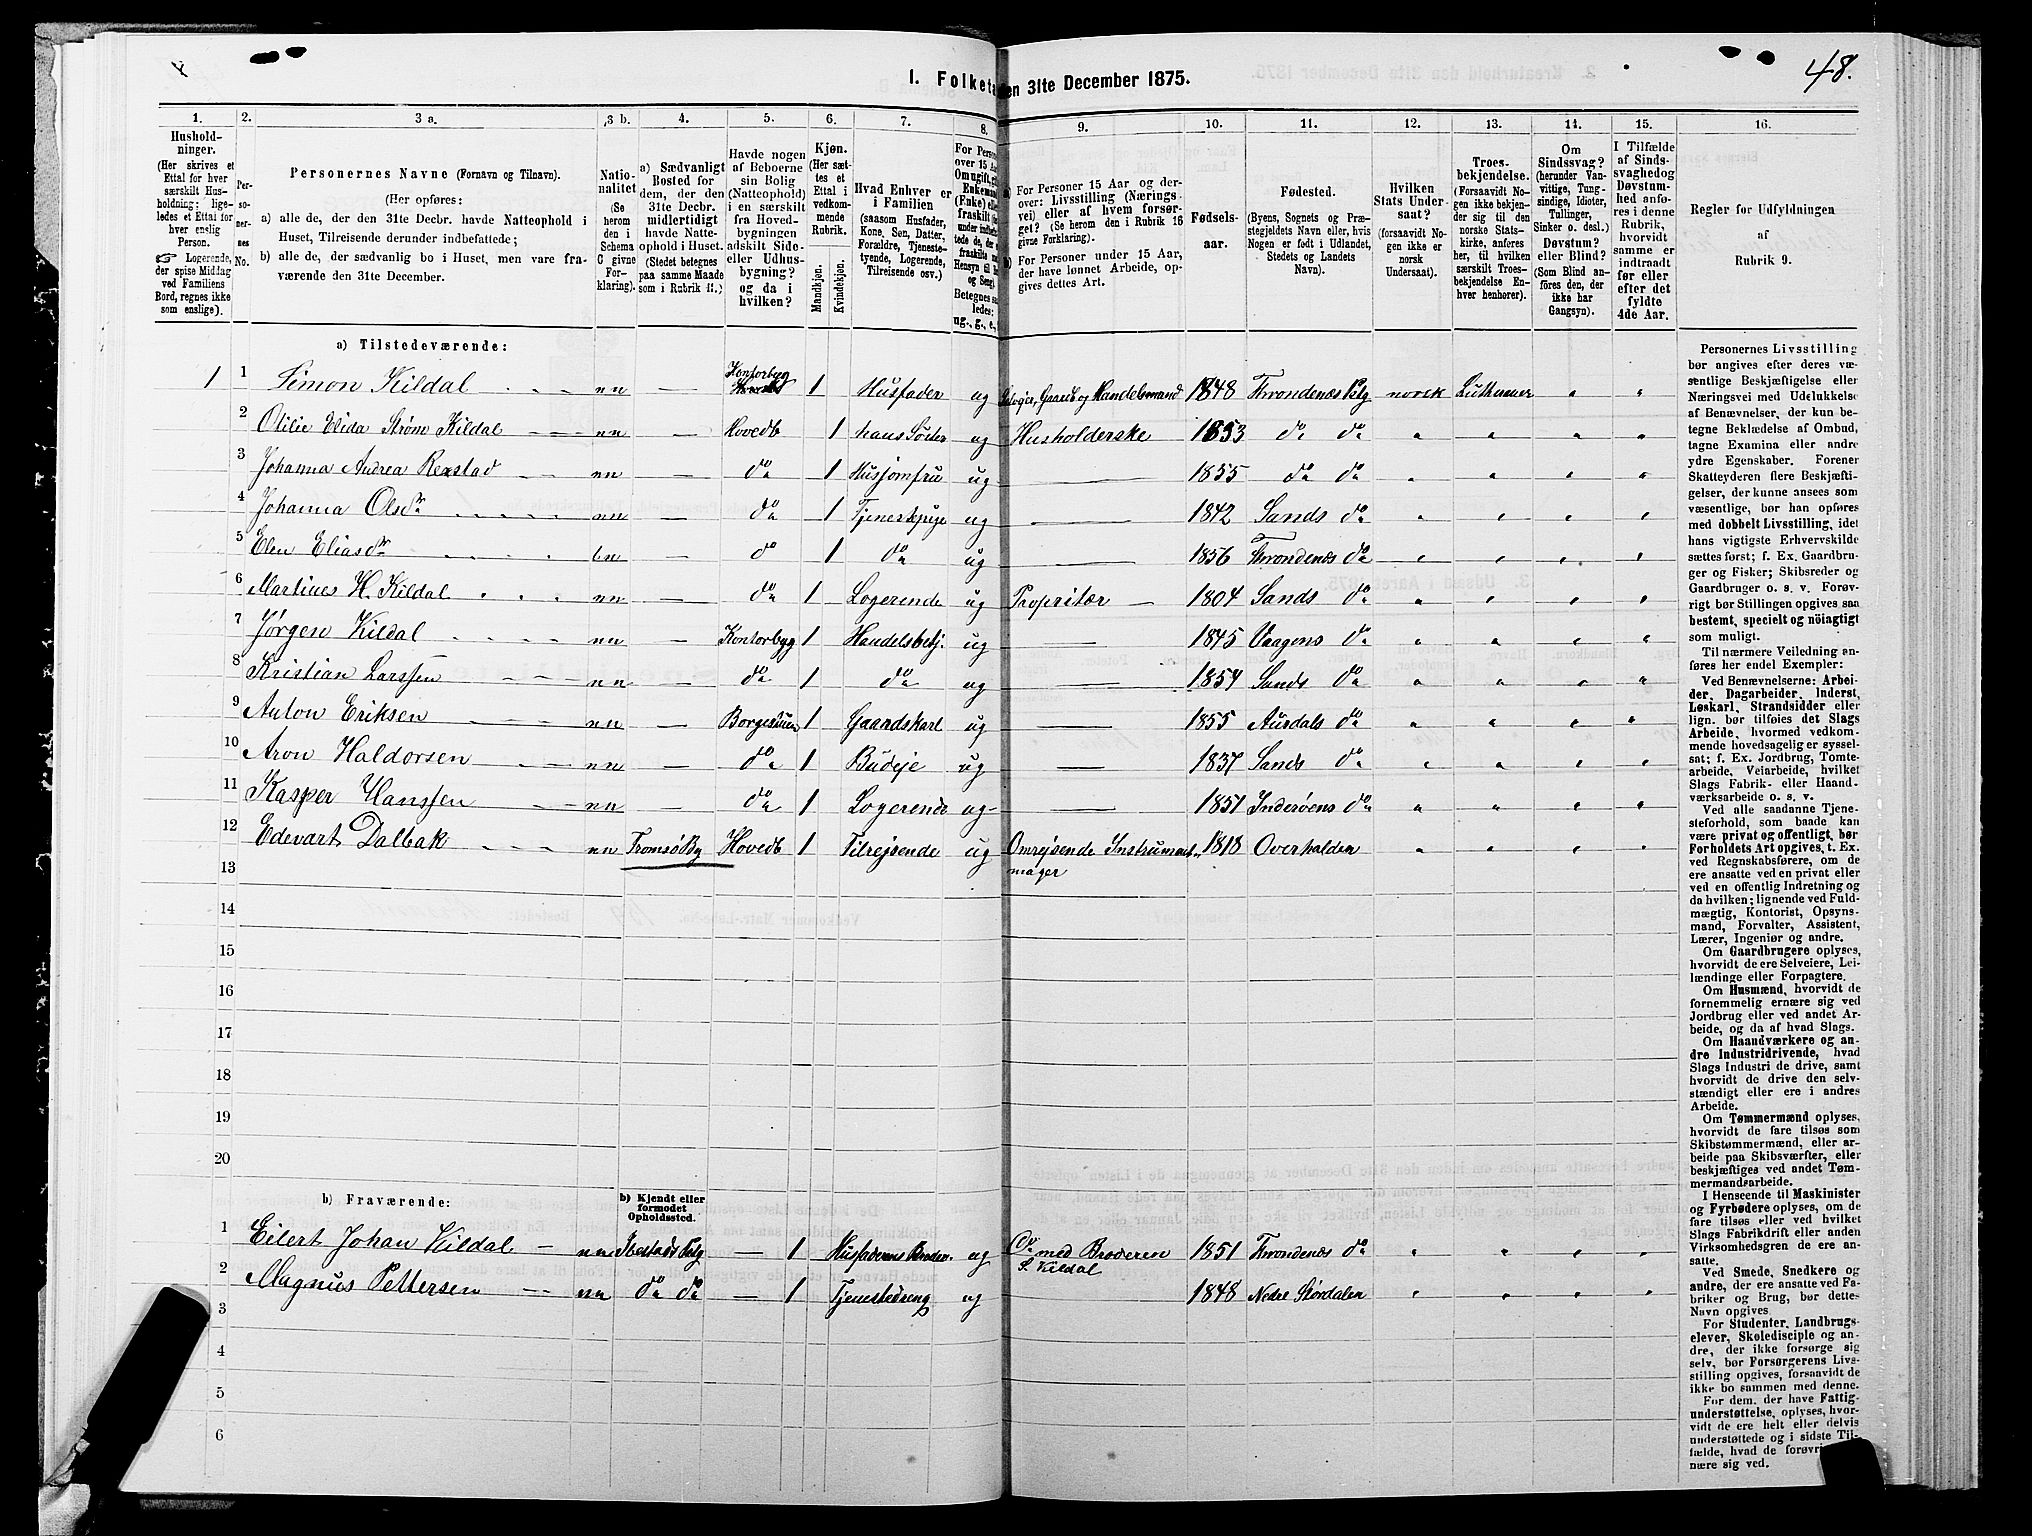 48.
I. Folketa en 31te December 1875.
1. 2. 3 a. 3 b. 4. 5. 6. 7. 8. 9. 10. 11. 12. 13. 14. 15. 16.
Hushold-
ninger.
(Her skrives et
Ettal for hver
særskilt Hus-
holdning; lige-
ledes et Ettal for
hver enslig
Person.
☞ Logerende,
der spise Middag
ved Familiens
Bord, regnes ikke
som enslige).
Per-
so-
ner-
nes
No.
Personernes Navne (Fornavn og Tilnavn).
(Her opføres:
a) alle de, der den 31te Decbr. havde Natteophold i
Huset, Tilreisende derunder indbefattede;
b) alle de, der sædvanlig bo i Huset, men vare fra-
værende den 31te December.
Natio-
nalitet
(Se
herom
den i
Schema
C givne
For-
klaring).
a) Sædvanligt
Bosted for
dem, der den
31te Decbr.
midlertidigt
havde Natte-
ophold i Huset.
(Stedet betegnes
paa samme Maade
som i Rubrik 11.)
Havde nogen
af Beboerne
sin Bolig
(Natteophold)
i en særskilt
fra Hoved-
bygningen
adskilt Side-
eller Udhus-
bygning?
og da i
hvilken?
Kjøn.
(Her sæt-
tes et
Ettal i
vedkom-
mende
Rubrik.
Mandkjøn.
Kvindekjøn.
Hvad Enhver er
i Familien
(saasom Husfader,
Kone, Søn, Datter,
Forældre, Tjeneste-
tyende, Logerende,
Tilreisende osv.)
9.
For Personer 15 Aar og der-
over: Livsstilling (Nærings-
vei) eller af hvem forsør-
get? (Se herom den i Rubrik 16
givne Forklaring).
For Personer under 15 Aar,
der have lønnet Arbeide, op-
gives dettes Art.
Fødsels-
aar.
Fødested.
(Byens, Sognets og Præ-
stegjeldets Navn eller, hvis
Nogen er født i Udlandet,
Stedets og Landets
Navn).
Hvilken
Stats Under-
saat?
(forsaavidt No-
gen ikke er
norsk
Undersaat).
Troes-
bekjendelse.
(Forsaavidt No-
gen ikke bekjen-
der sig til den
norske Stats-
kirke, anføres
her, til hvilken
særskilt Troes-
bekjendelse En-
hver henhører).
Om
Sindssvag?
(herunder Van-
vittige, Tung-
sindige, Idioter,
Tullinger,
Sinker o. desl.)
Døvstum?
eller Blind?
(Som Blind an-
føres den, der
ikke har
Gangsyn).
I Tilfælde
af Sinds-
svaghed og
Døvstum-
hed anfø-
res i denne
Rubrik,
hvorvidt
samme er
indtraadt
før eller
efter det
fyldte
4de Aar.
Regler for Udfyldningen
af
Rubrik 9.
a) Tilstedeværende:
1 1 Simon Kildal nn — Kontorbyg 1 Husfader ug Gaardb og Handelsmand 1848 Throndenæs Pglg norsk Lutheraner
2 Otilie Elida Strøm Kildal nn — Hovedb 1 hans Søster ug Husholderske 1853 do do
3 Johanna Andrea Rexstad nn — do 1 Husjomfru ug — 1855 do do
4 Johanna Olsdr nn — do 1 Tjenestepige ug — 1842 Sands do
5 Elen Eliasdr bn — do 1 do ug — 1856 Throndenæs do
6 Martines H. Kildal nn — do 1 Logerende ug Propritær — 1804 Sands do
7 Jørgen Kildal nn — Kontorbyg 1 Handelsbetj. ug — 1845 Vaagens do
8 Kristian Larssen nn — do 1 do ug — 1854 Sands do
9 Anton Eriksen nn — Borgestuen 1 Gaardskarl ug — 1855 Aurdals do
10 Aron Haldorsen nn — do 1 Budeje ug — 1837 Sands do
11 Kasper Hanssen nn — do 1 Logerende ug — 1851 Inderøens do
12 Edevart Dalbak nn Tromsø By Hovedb 1 Tilrejsende ug Omrejsende Instrument- 1818 Overhalden
13 mager
14
15
16
17
18
19
20
b) Fraværende:
b) Kjendt eller
formodet
Opholdssted.
1 Eilert Johan Kildal — nn Ibestads Pglg — 1 Husfaderens Broder ug Do med Broderen 1851 Throndenæs do
S. Kildal
2 Magnus Pettersen nn do do — 1 Tjenestedreng ug — 1848 Nedre Størdalen
3
4
5
6
Personernes Livsstilling
bør angives efter deres væ-
sentlige Beskjæftigelse eller
Næringsvei med Udelukkelse
af Benævnelser, der kun be-
tegne Beklædelse af Ombud,
tagne Examina eller andre
ydre Egenskaber. Forener
Skatteyderen flere Beskjæfti-
gelser, der kunne ansees som
væsentlige, bør han opføres
med dobbelt Livsstilling, idet
hans vigtigste Erhvervskilde
sættes først; f. Ex. Gaardbru-
ger og Fisker; Skibsreder og
Gaardbruger o. s. v. Forøv-
rigt bør Stillingen opgives saa
bestemt, specielt og nöiagtigt
som muligt.
Til nærmere Veiledning an-
føres her endel Exempler:
Ved Benævnelserne: Arbei-
der, Dagarbeider, Inderst,
Løskarl, Strandsidder eller
lign. bør tilføies det Slags
Arbeide, hvormed vedkom-
mende hovedsagelig er syssel-
sat; f. Ex. Jordbrug, Tomte-
arbeide, Veiarbeide, hvilket
Slags Fabrik- eller Haand-
værksarbeide o. s. v.
Ved alle saadanne Tjene-
steforhold, som baade kan
være privat og offentligt, bør
Forholdets Art opgives, t. Ex.
ved Regnskabsførere, om de
ere ansatte ved en privat eller
ved en offentlig Indretning og
da hvilken; lignende ved Fuld-
mægtig, Kontorist, Opsyns-
mand, Forvalter, Assistent,
Lærer, Ingeniør og andre.
Om Gaardbrugere oplyses,
hvorvidt de ere Selveiere, Lei-
lændinge eller Forpagtere.
Om Husmænd, hvorvidt de
fornemmelig ernære sig ved
Jordbrug eller ved andet Ar-
beide, og da af hvad Slags.
Om Haandværkere og an-
dre Industridrivende, hvad
Slags Industri de drive, samt
hvorvidt de drive den selv-
stændigt eller ere i andres
Arbeide.
Om Tømmermænd oplyses,
hvorvidt de fare tilsøs som
Skibstømmermænd, eller ar-
beide paa Skibsværfter, eller
beskjæftiges ved andet Tøm-
mermandsarbeide.
I Henseende til Maskinister
og Fyrbødere oplyses, om de
fare tilsøs eller ved hvilket
Slags Fabrikdrift eller anden
Virksomhedsgren de ere an-
satte.
Ved Smede, Snedkere og
andre, der ere ansatte ved Fa-
briker og Brug, bør dettes
Navn opgives.
For Studenter, Landbrugs-
elever, Skoledisciple og an-
dre, der ikke forsørge sig
selv, bør Forsørgerens Livs-
stilling opgives, forsaavidt de
ikke bo sammen med denne.
For dem, der have Fattig-
understøttelse, oplyses, hvor-
vidt de ere helt eller delvis
understøttede og i sidste Til-
fælde, hvad de forøvri
nære sig ved.